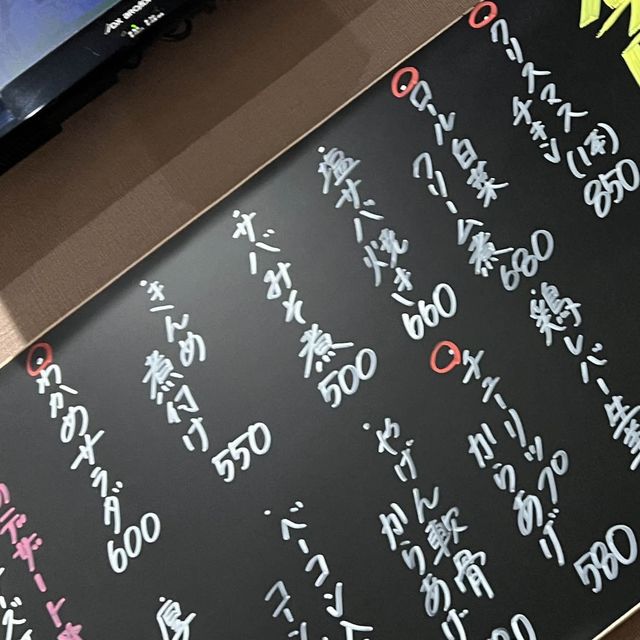 クリスマス
チキン(1本)
850
ロール白菜
クリーム煮
680
塩サバ焼き
660
サバみそ煮
500
きんめ
煮付け
550
わかめサラダ
600
鶏レバー生姜
チューリップ
からあげ
580
やげん軟骨
からあげ
ベーコン
コーン
厚
デザート